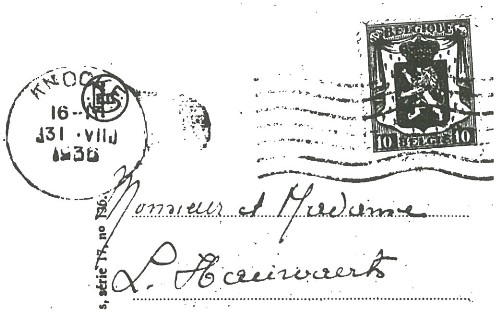 KNOCKE
16-
31 · VII
1936
BELGIQUE
10 BELGIE 10
Monsieur et Madame
L. Hauwaerts
s, série 17, no 196.